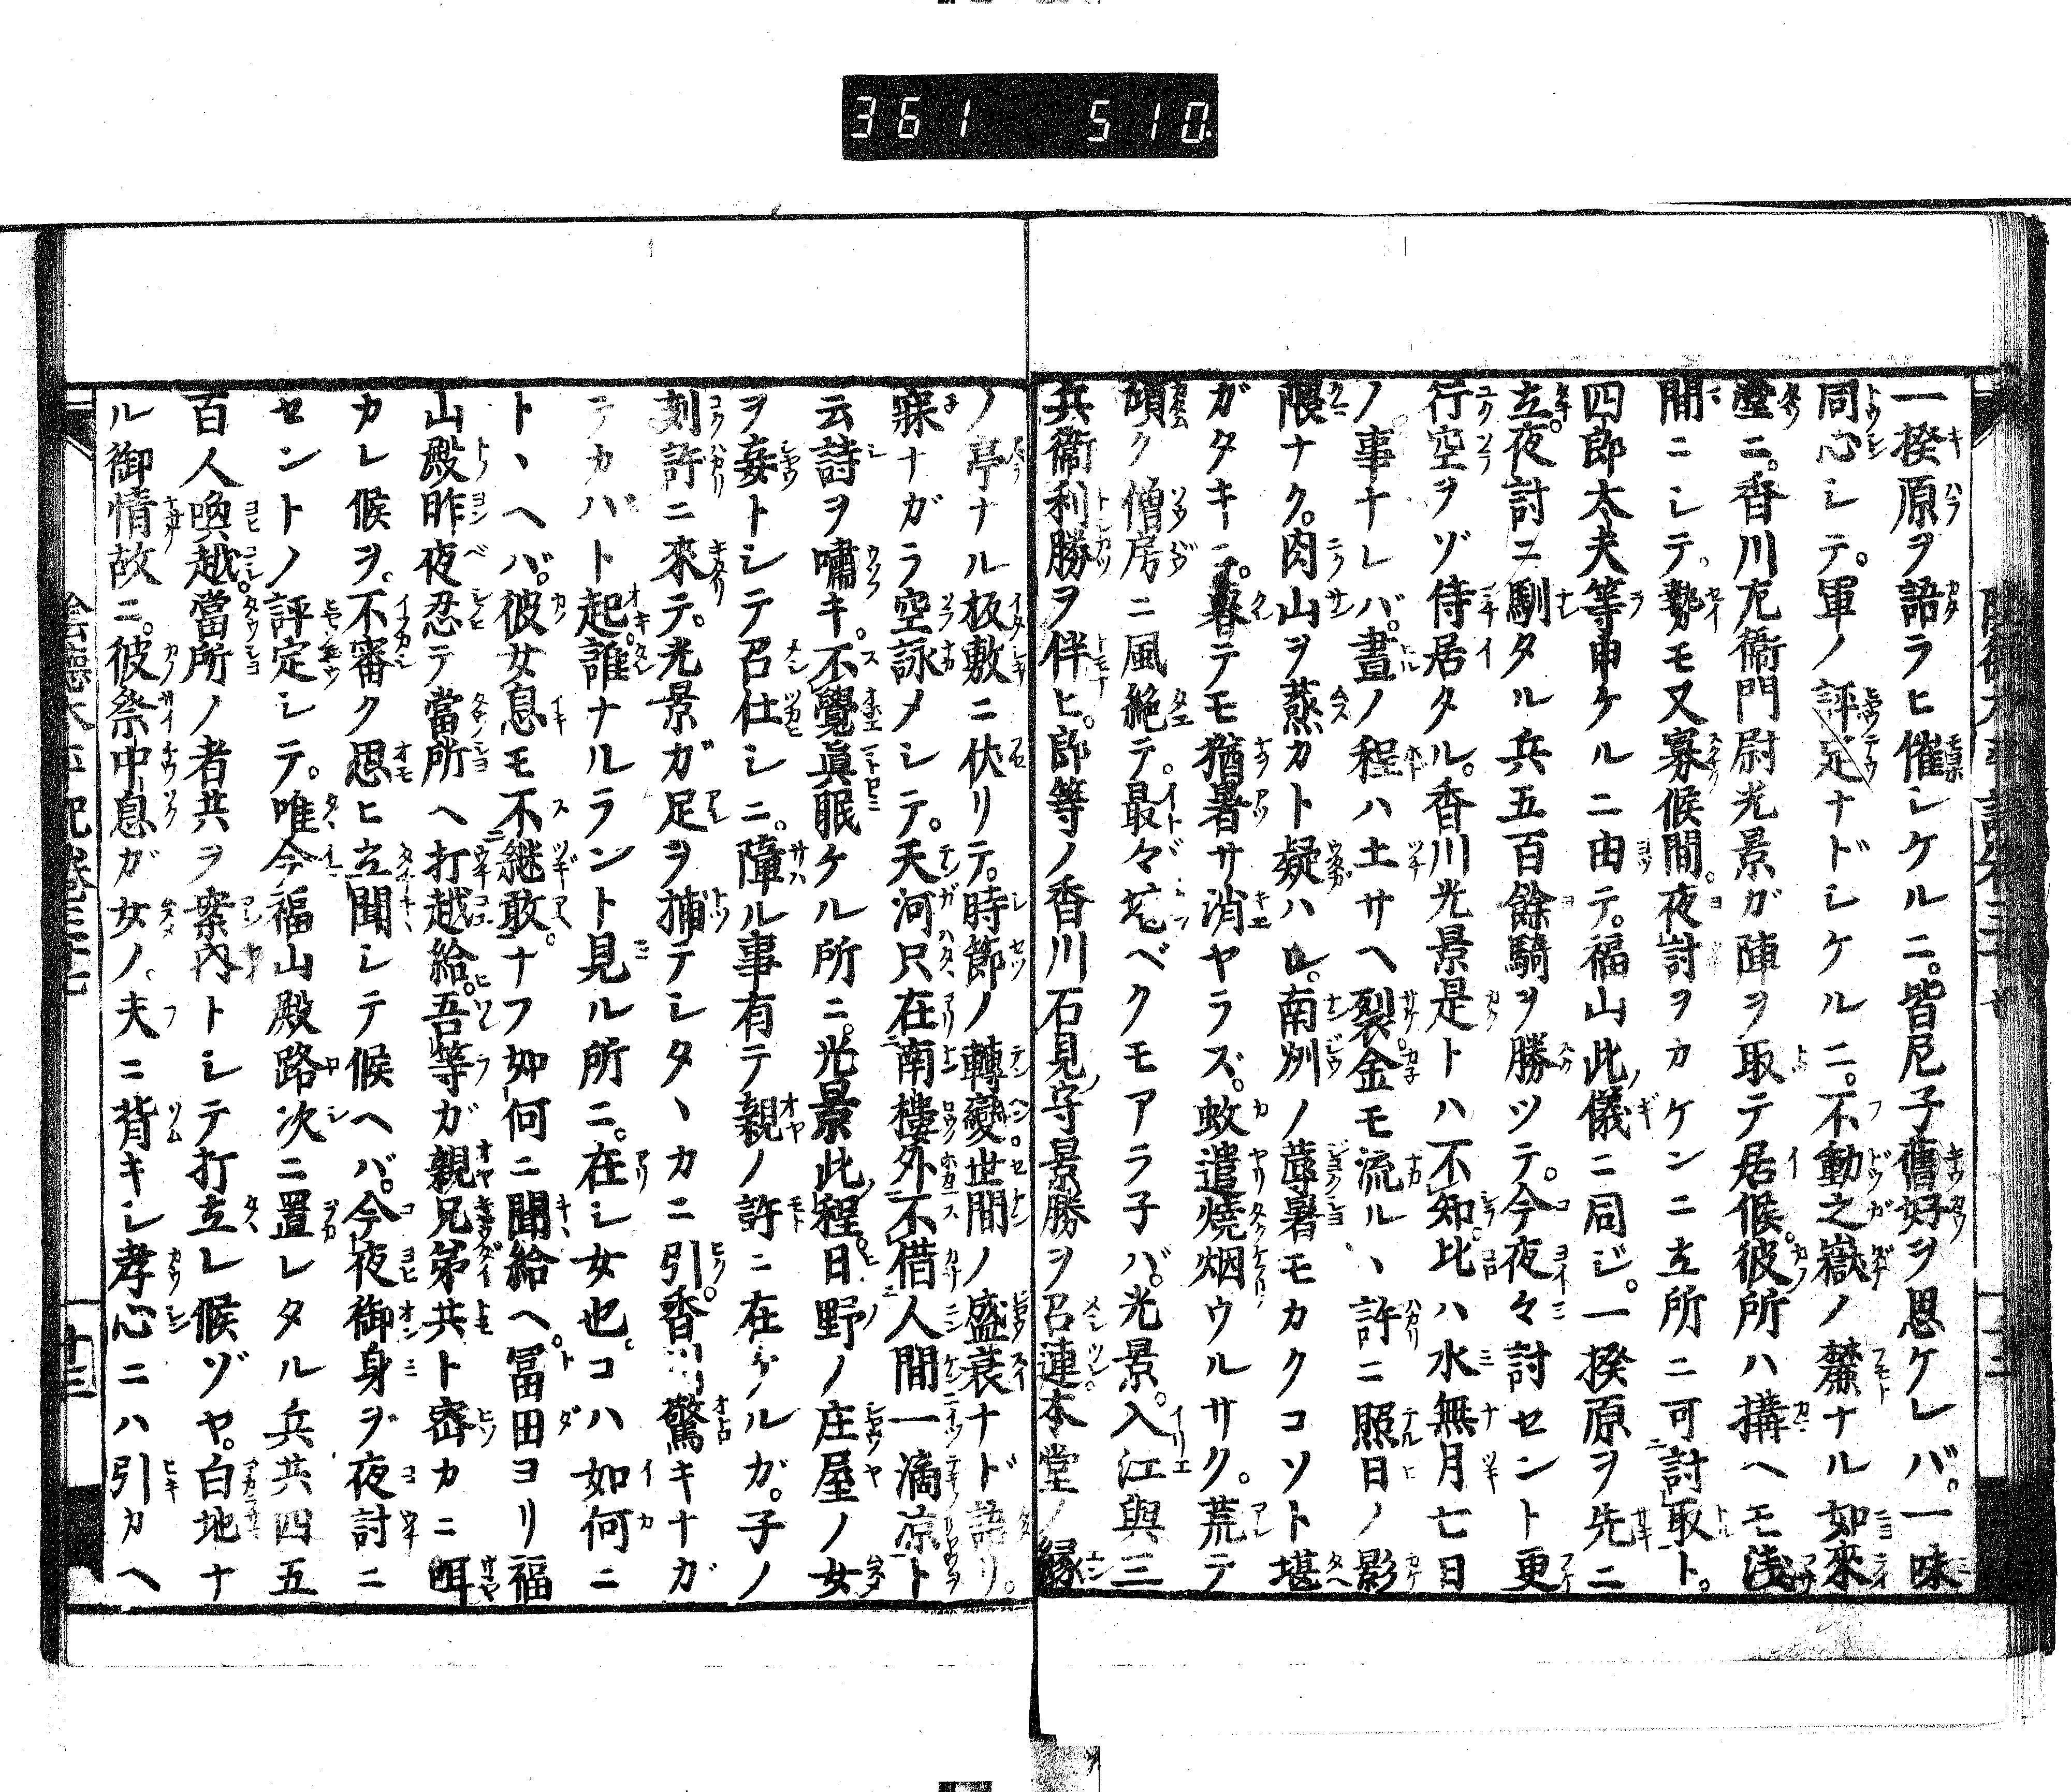 361 510
一揆原ヲ語ラヒ催シケルニ。皆尼子舊好ヲ思ケレバ。一味
同心シテ。軍ノ評定ナドシケルニ。不動之嶽ノ麓ナル如來
堂ニ。香川左衞門尉光景ガ陣ヲ取テ居候。彼所ハ搆ヘモ淺
間ニシテ。勢モ又寡候間。夜討ヲカケンニ立所ニ可討取ト。
四郎太夫等申ケルニ由テ。福山此儀ニ同ジ。一揆原ヲ先ニ
立。夜討ニ馴タル兵五百餘騎ヲ勝ツテ。今夜々討セント更
行空ヲゾ侍居タル。香川光景是トハ不知。比ハ水無月七日
ノ事ナレバ。晝ノ程ハ土サヘ裂。金モ流ルヽ許ニ照日ノ影
隈ナク。肉山ヲ蒸カト疑ハレ。南州ノ薜暑モカクコソト堪
ガタキニ。暮テモ猶暑サ消ヤラズ。蚊遣燒烟ウルサク。荒テ
頃ク僧房ニ風絶テ。最々 ベクモアラ子バ。光景。入江與三
兵衞利勝ヲ伴ヒ。郎等ノ香川石見守景勝ヲ召連本堂ノ縁
ノ亭ナル板敷ニ伏リテ。時節ノ轉變。世間ノ盛衰ナド語リ。
寐ナガラ空詠メシテ。天河只在南樓外不借人間一滴凉ト
云詩ヲ嘯キ。不覺眞眠ケル所ニ。光景此程。日野ノ庄屋ノ女
ヲ妾トシテ召仕シニ。障ル事有テ親ノ許ニ在ケルガ。子ノ
刻許ニ來テ。光景ガ足ヲ捕テシタヽカニ引。香川驚キナガ
テカバト起。誰ナルラント見ル所ニ。在シ女也。コハ如何ニ
トヽヘバ。彼女息モ不継敢。ナフ如何ニ聞給ヘ。冨田ヨリ福
山殿昨夜忍テ當所ヘ打越給。吾等ガ親兄弟共ト密カニ耳
カレ候ヲ。不審ク思ヒ立聞シテ候ヘバ。今夜御身ヲ夜討ニ
セントノ評定シテ。唯今福山殿路次ニ置レタル兵共四五
百人喚越。當所ノ者共ヲ案内トシテ打立レ候ゾヤ。白地ナ
ル御情故ニ。彼祭中息ガ女ノ。夫ニ背キシ孝心ニハ引カヘ
陰德太平記卷三十七
十三